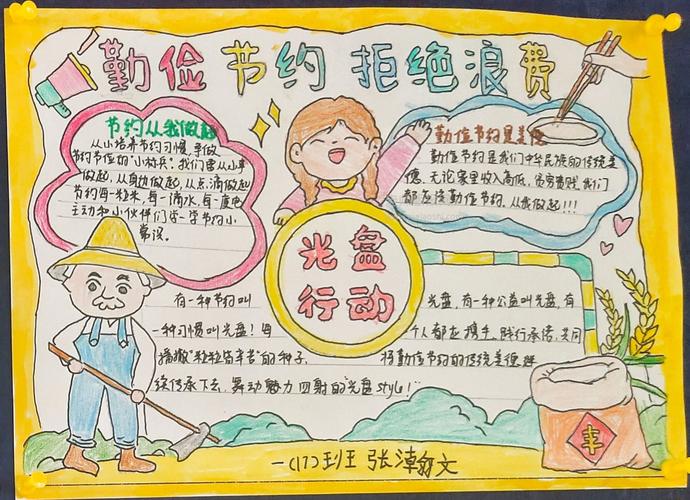 勤俭节约 拒绝浪费
节约从我做起
从小培养节约习惯，争做
节约节俭的“小标兵”。我们要从小事
做起，从身边做起，从点滴做起
节约每一粒米，每一滴水，每一度电
主动和小伙伴们学一学节约小
常识。
勤俭节约是美德
勤俭节约是我们中华民族的传统美
德，无论家里收入高低，贫穷贵贱，我们
都应该勤俭节约，从我做起！！！
光盘
行动
有一种节约叫 光盘，有一种公益叫光盘，有
一种习惯叫光盘！每 个人都应携手，践行承传，共同
播撒“粒粒皆辛苦”的种子， 将勤俭节约的传统美德继
续传承下去，舞动魅力四射的“光盘style！”
丰
一（17）班 张漳翰文